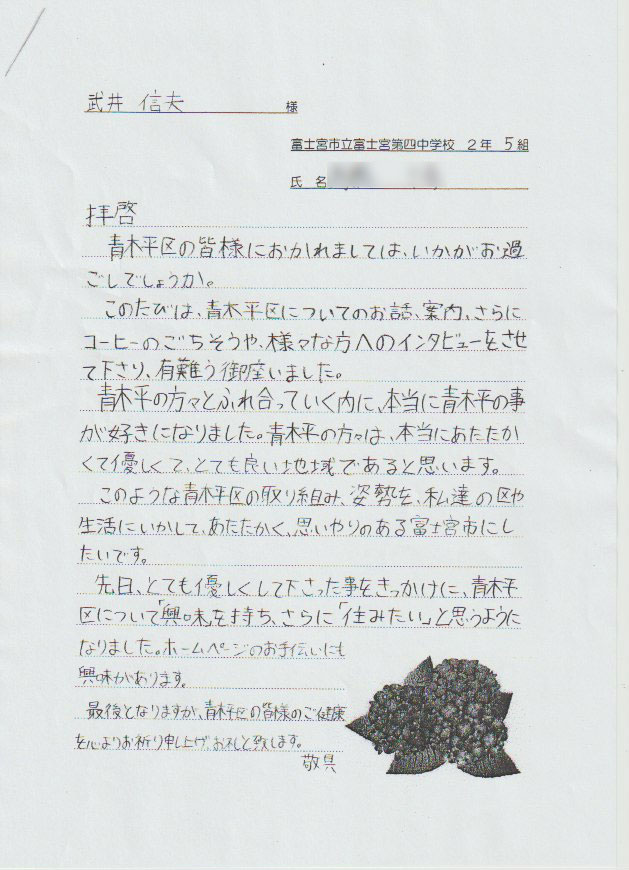 武井 信夫 様
富士宮市立富士宮第四中学校 2年 5組
氏名
拝啓
青木平区の皆様におかれましては、いかがお過
ごしでしょうか。
このたびは、青木平区についてのお話、案内、さらに
コーヒーのごちそうや、様々な方へのインタビューをさせ
て下さり、有難う御座いました。
青木平の方々とふれ合っていく内に、本当に青木平の事
が好きになりました。青木平の方々は、本当にあたたか
くて優しくて、とても良い地域であると思います。
このような青木平区の取り組み、姿勢を、私達の区や
生活にいかして、あたたかく、思いやりのある富士宮市にし
たいです。
先日、とても優しくして下さった事をきっかけに、青木平
区について「興味」を持ち、さらに「住みたい」と思うように
なりました。ホームページのお手伝いにも
興味があります。
最後となりますが、青木平区の皆様のご健康
を心よりお祈り申し上げ、お礼と致します。
敬具